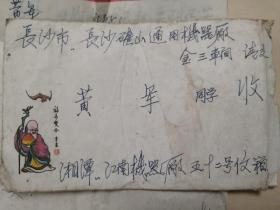 黄军
長沙市、長沙礦山通用機器廠
金三車间 请交
黄 军 同学 收
湘潭、江南機器廠五十二号信箱